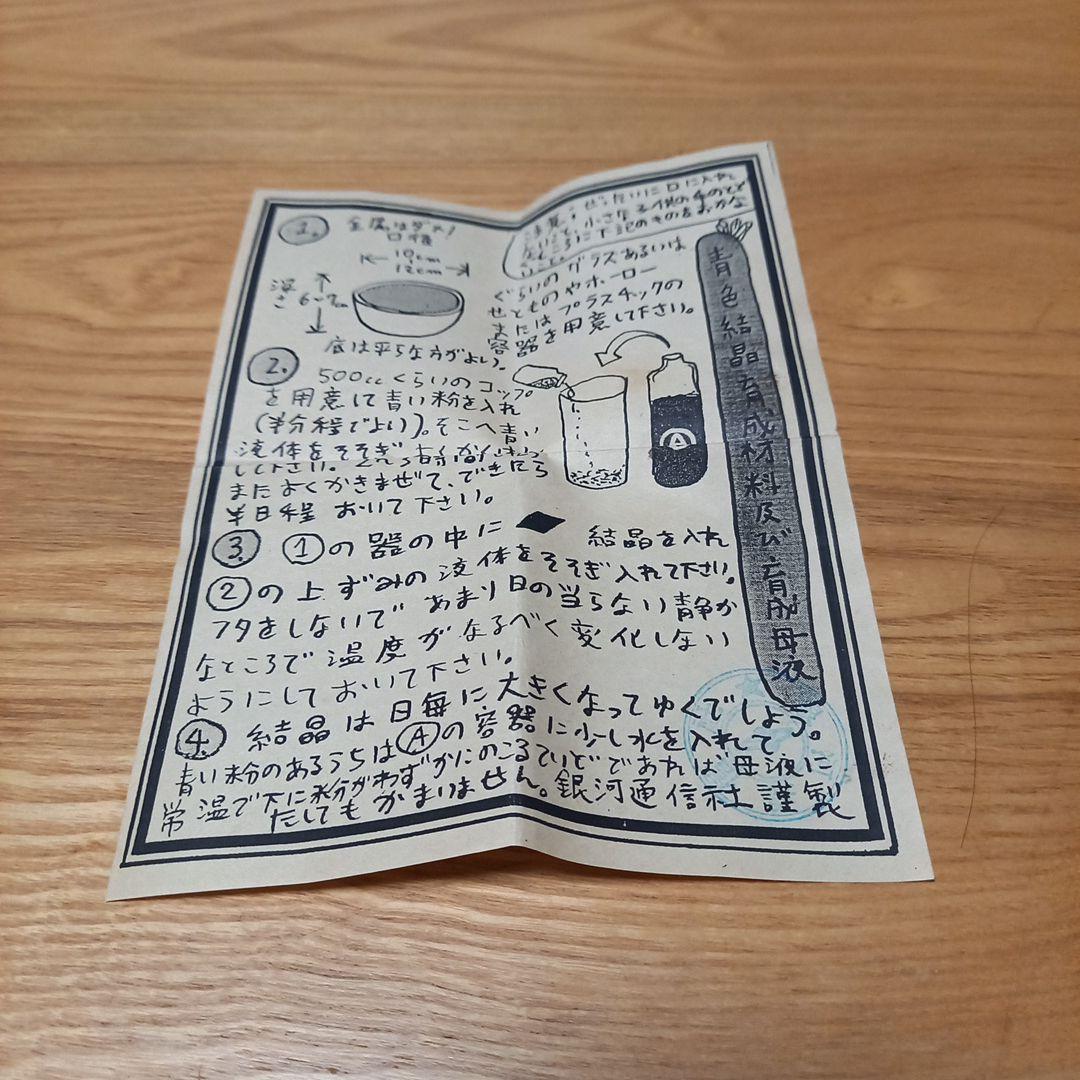 青色結晶育成材料及び育成母液
注意！ぜったいに口に入れ
ないで、小さな子供の手のとど
くところに下記のものをおかな
いこと。
1. 金属はダメ！
口径
10cm
12cm
深さ 6〜7cm
ぐらいのガラスあるいは
せとものやホーロー
またはプラスチックの
容器を用意して下さい。
底は平らな方がよい。
2. 500ccくらいのコップ
を用意して青い粉を入れ
(半分程でよい)。そこへ青い
液体をそそぎ
して下さい。
またよくかきまぜて、できたら
半日程おいて下さい。
A
3. ①の器の中に◆結晶を入れ
②の上ずみの液体をそそぎ入れて下さい。
フタをしないであまり日の当らない静か
なところで温度がなるべく変化しない
ようにしておいて下さい。
4. 結晶は日毎に大きくなってゆくでしょう。
青い粉のあるうちはⒶの容器に少し水を入れて
常温で下に粉がわずかにのこるていどであれば母液に
たしてもかまいません。銀河通信社謹製